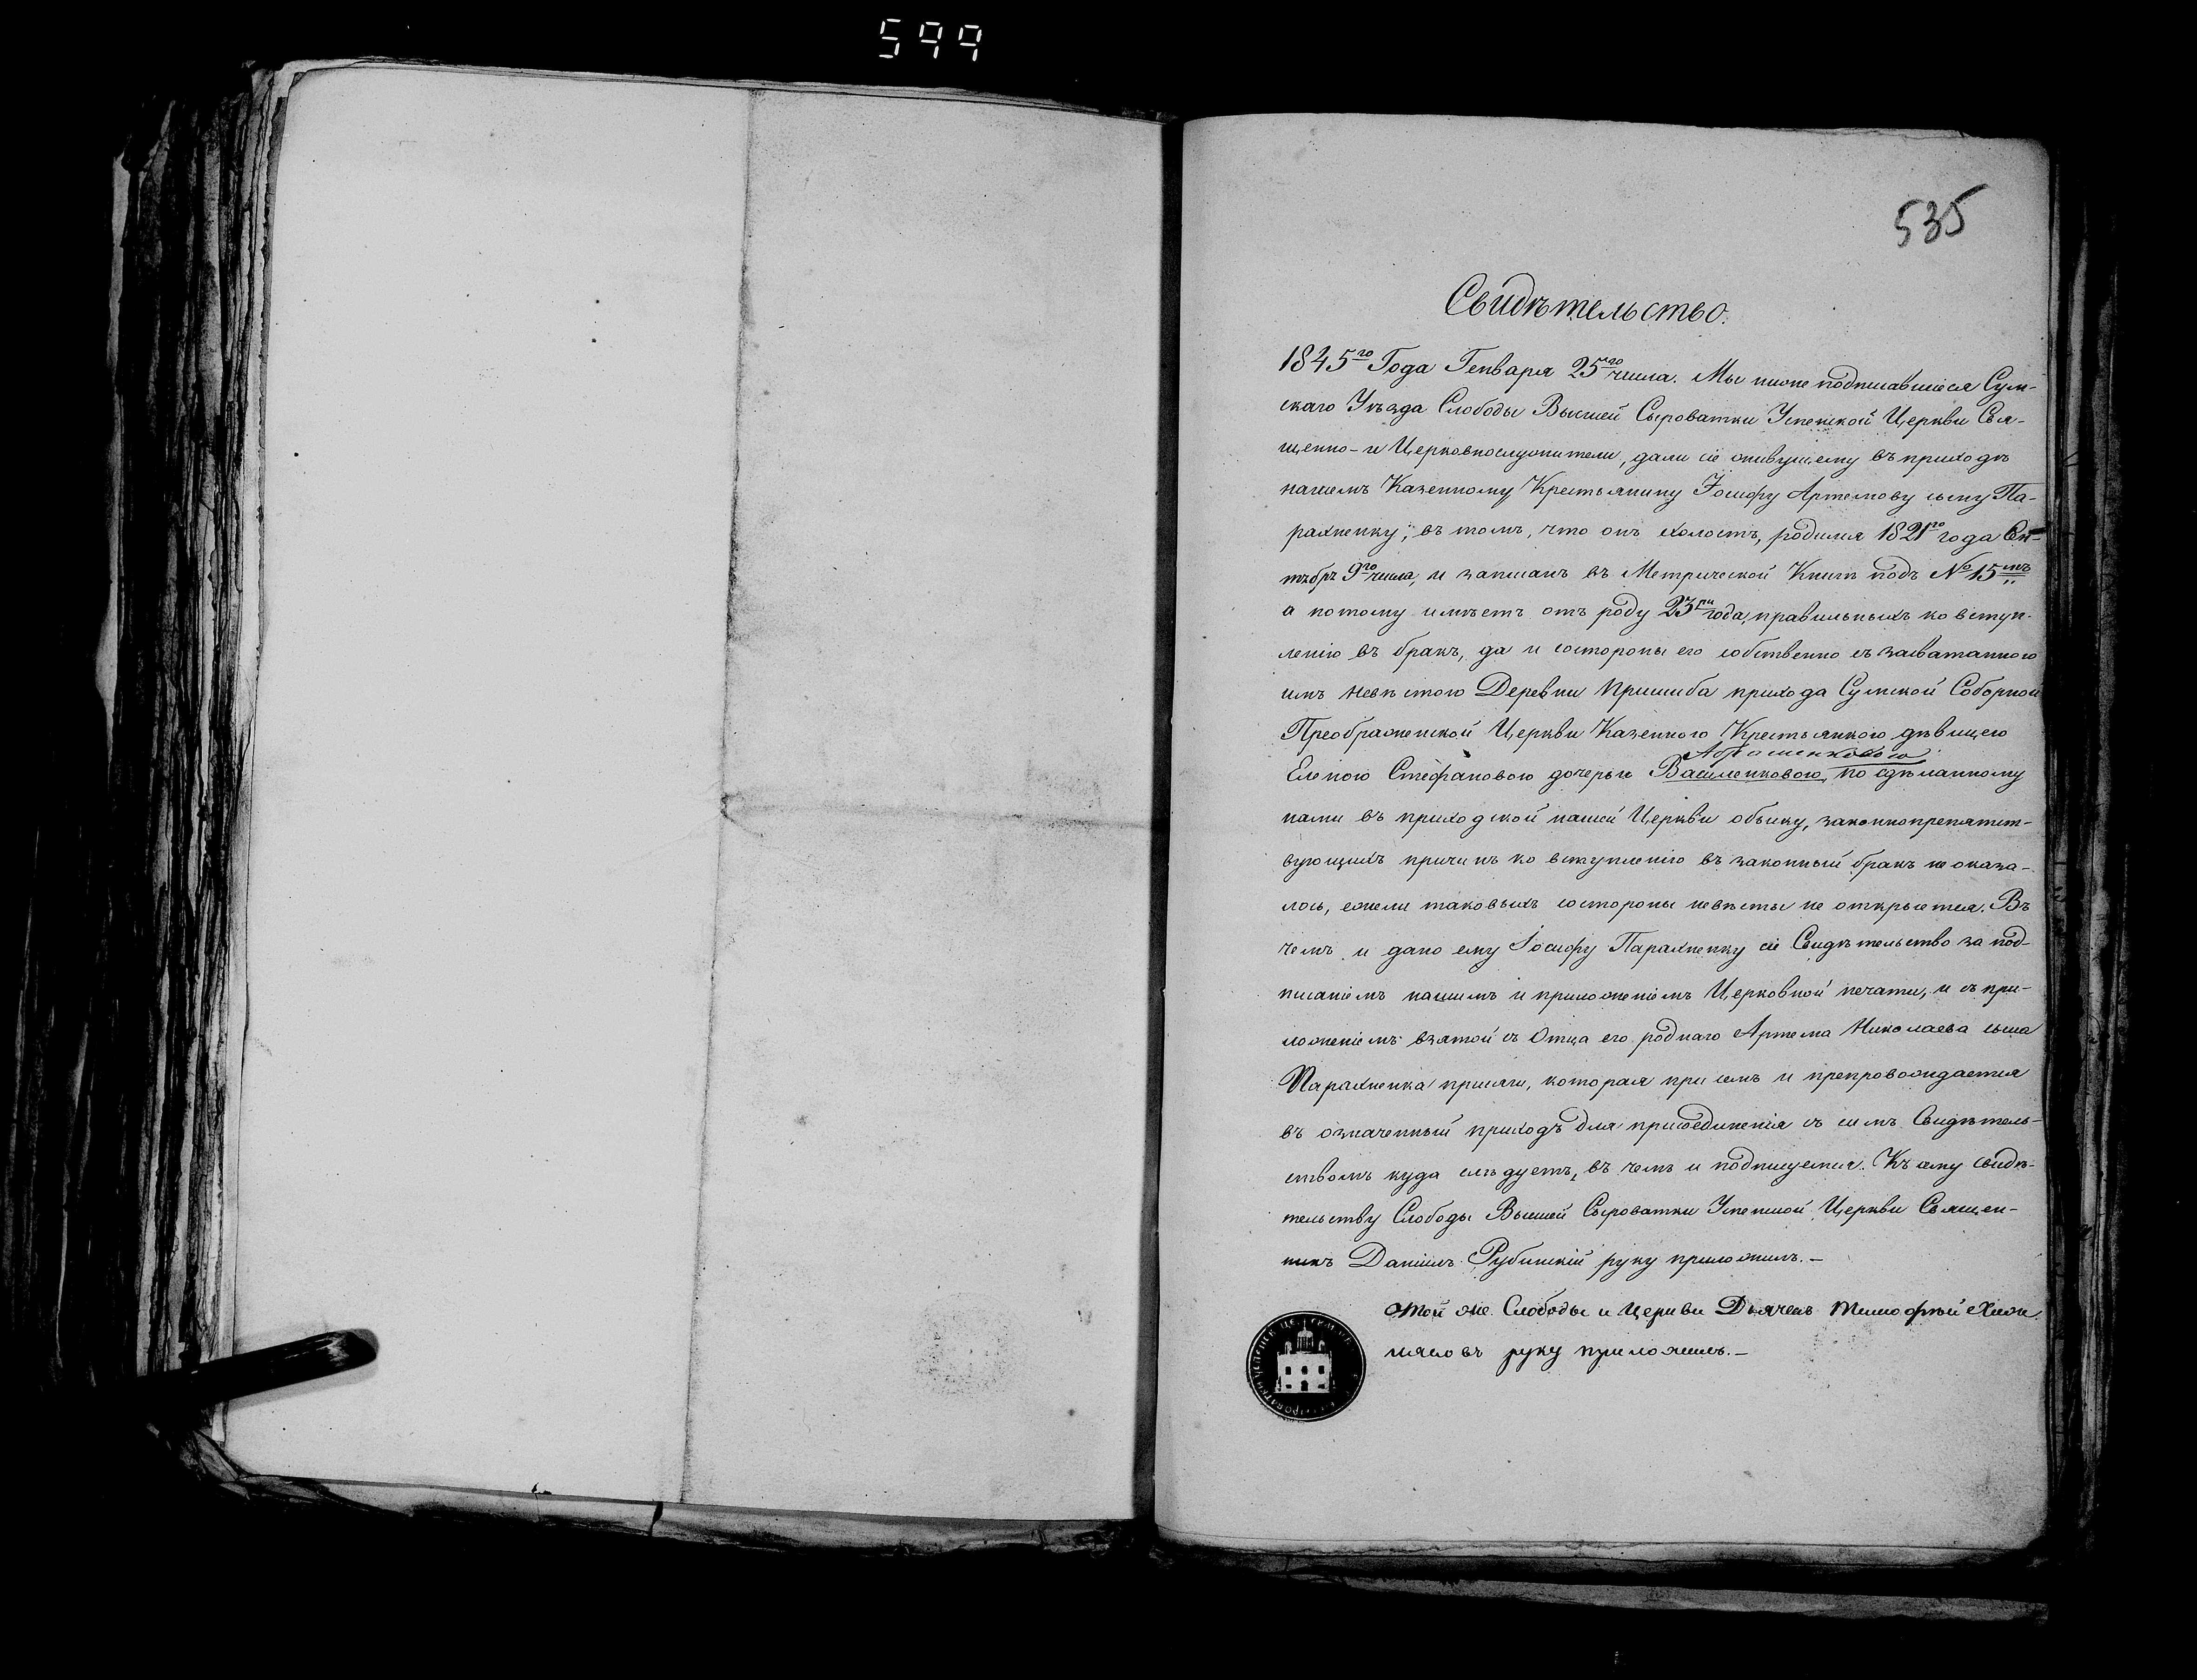 599
535
Свидѣтельство.
1845го Года Генваря 25го числа. Мы ниже подписавшіеся Сум-
скаго Уѣзда Слободы Высшей Сыроватки Успенской Церкви Свя-
щенно- и Церковнослужители, дали сіе живущему въ приходѣ
нашемъ Казенному Крестьянину Іосифу Артемову сыну Па-
рахненку; въ томъ, что онъ холостъ, родился 1821го года Сен-
тѣбрѣ 9го числа, и записанъ въ Метрической Книгѣ подъ № 15мъ
а потому имѣетъ отъ роду 23ри года, правильныхъ ко вступ-
ленію въ бракъ, да и состороны его собственно съ засватанною
имъ невѣстою Деревни Пришиба прихода Сумской Соборной
Преображенской Церкви Казенною Крестьянкою дѣвицею
Абраменковою
Еленою Стефановою дочерью Василенковою, по сдѣланному
нами въ приходской нашей Церкви обыску, законнопрепятст-
вующихъ причинъ ко вступленію въ законный бракъ не оказа-
лось, ежели таковыхъ состороны невѣсты не откроется. Въ
чемъ и дано ему Іосифу Парахненку сіе Свидѣтельство за под-
писаніемъ нашимъ и приложеніемъ Церковной печати, и съ при-
ложеніемъ взятой съ Отца его роднаго Артема Николаева сына
Парахненка присяги, которая при семъ и препровождается
въ означенный приходъ для присоединенія съ симъ Свидѣтель-
ствомъ куда слѣдуетъ, въ чемъ и подпишуемся. Къ сему свидѣ-
тельству Слободы Высшей Сыроватки Успенской Церкви Священ-
никъ Даніилъ Рубинскій руку приложилъ.—
Той же Слободы и Церкви Дьячекъ Тимофѣй
руку приложилъ.—